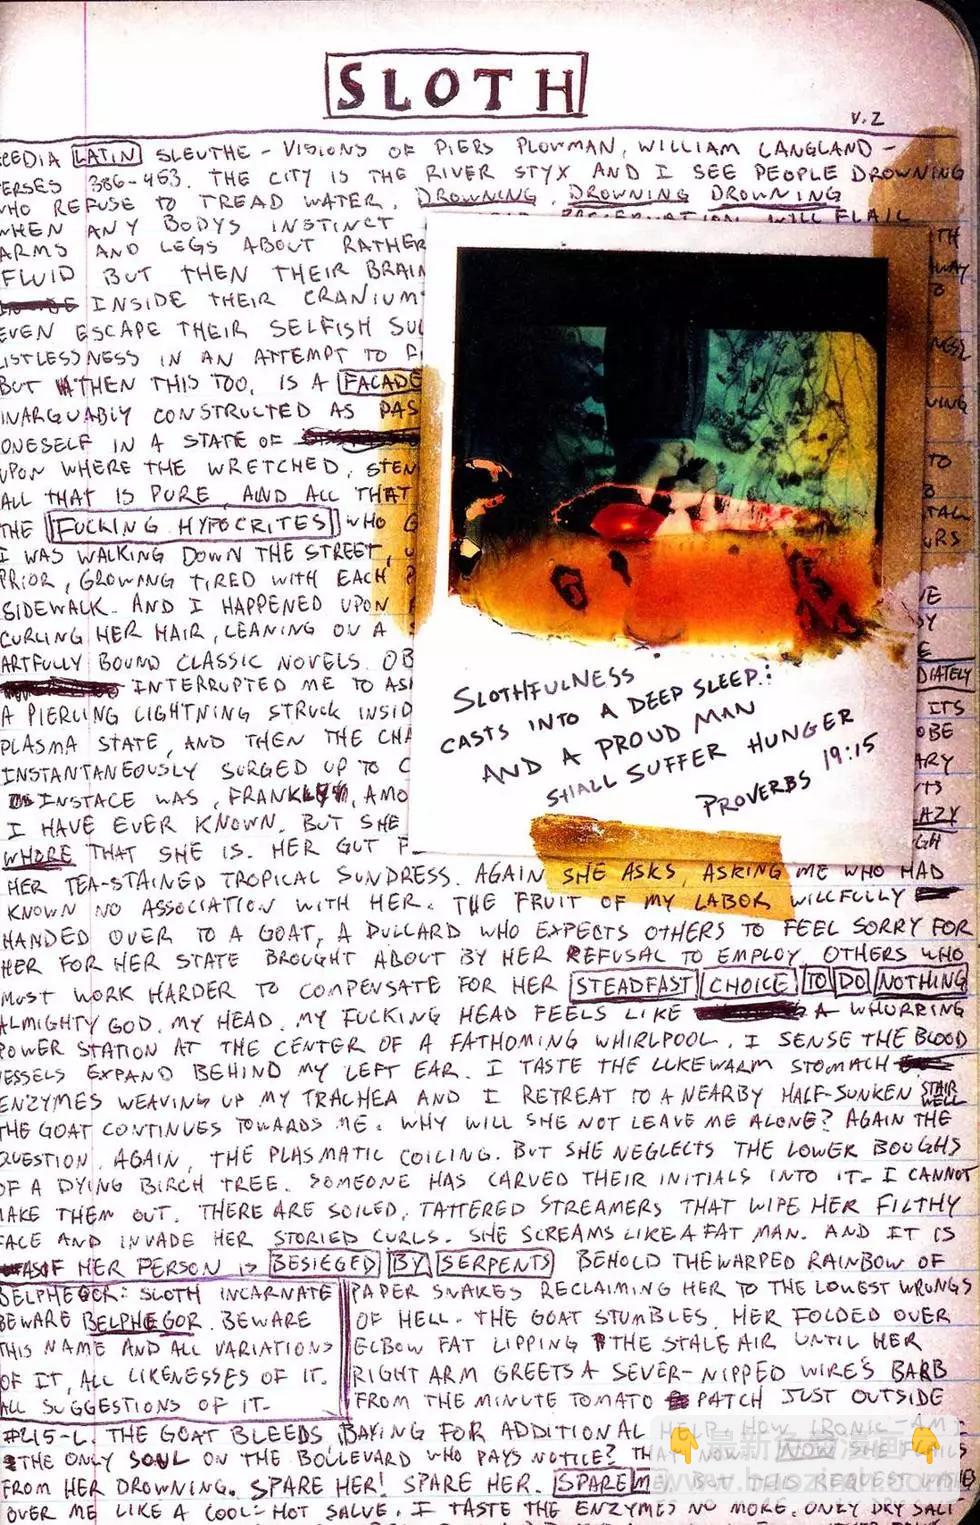 SLOTH
V.2
CEDIA LATIN SLEUTHE - VISIONS OF PIERS PLOWMAN, WILLIAM LANGLAND -
ERSES 386-463. THE CITY IS THE RIVER STYX AND I SEE PEOPLE DROWNING
WHO REFUSE TO TREAD WATER. DROWNING. DROWNING DROWNING
WHEN ANY BODYS INSTINCT PRESERVATION WILL FLAIL
ARMS AND LEGS ABOUT RATHER TH
FLUID BUT THEN THEIR BRAIN WAY
INSIDE THEIR CRANIUM O
EVEN ESCAPE THEIR SELFISH
LISTLESSNESS IN AN ATTEMPT TO
BUT THEN THIS TOO, IS A FACADE
INARGUABLY CONSTRUCTED AS PAS
ONESELF IN A STATE OF
UPON WHERE THE WRETCHED, STEN TO
ALL THAT IS PURE AND ALL THAT
THE FUCKING HYPOCRITES WHO
I WAS WALKING DOWN THE STREET, URS
PRIOR, GROWING TIRED WITH EACH
SIDEWALK. AND I HAPPENED UPON
CURLING HER HAIR, LEANING ON A
ARTFULLY BOUND CLASSIC NOVELS. OB
INTERRUPTED ME TO AS DIATELY
A PIERCING LIGHTNING STRUCK INSID ITS
PLASMA STATE, AND THEN THE CHA OBE
INSTANTANEOUSLY SURGED UP TO ARY
INSTACE WAS, FRANKLY, AMO
I HAVE EVER KNOWN. BUT SHE AZY
WHORE THAT SHE IS. HER GUT GH
SLOTHFULNESS
CASTS INTO A DEEP SLEEP:
AND A PROUD MAN
SHALL SUFFER HUNGER
PROVERBS 19:15
HER TEA-STAINED TROPICAL SUNDRESS. AGAIN SHE ASKS, ASKING ME WHO HAD
KNOWN NO ASSOCIATION WITH HER. THE FRUIT OF MY LABOR WILLFULLY
HANDED OVER TO A GOAT, A DULLARD WHO EXPECTS OTHERS TO FEEL SORRY FOR
HER FOR HER STATE BROUGHT ABOUT BY HER REFUSAL TO EMPLOY. OTHERS WHO
MUST WORK HARDER TO COMPENSATE FOR HER STEADFAST CHOICE TO DO NOTHING
ALMIGHTY GOD. MY HEAD. MY FUCKING HEAD FEELS LIKE A WHURRING
POWER STATION AT THE CENTER OF A FATHOMING WHIRLPOOL. I SENSE THE BLOOD
ESSELS EXPAND BEHIND MY LEFT EAR. I TASTE THE LUKEWARM STOMACH
ENZYMES WEAVING UP MY TRACHEA AND I RETREAT TO A NEARBY HALF-SUNKEN STAIR WELL
THE GOAT CONTINUES TOWARDS ME. WHY WILL SHE NOT LEAVE ME ALONE? AGAIN THE
QUESTION, AGAIN, THE PLASMATIC COILING. BUT SHE NEGLECTS THE LOWER BOUGHS
OF A DYING BIRCH TREE. SOMEONE HAS CARVED THEIR INITIALS INTO IT. I CANNOT
MAKE THEM OUT. THERE ARE SOILED, TATTERED STREAMERS THAT WIPE HER FILTHY
FACE AND INVADE HER STORIED CURLS. SHE SCREAMS LIKE A FAT MAN. AND IT IS
AS IF HER PERSON IS BESIEGED BY SERPENTS BEHOLD THE WARPED RAINBOW OF
BELPHEGOR: SLOTH INCARNATE
BEWARE BELPHEGOR. BEWARE
THIS NAME AND ALL VARIATIONS
OF IT, ALL LIKENESSES OF IT.
ALL SUGGESTIONS OF IT.
PAPER SNAKES RECLAIMING HER TO THE LOWEST WRUNGS
OF HELL. THE GOAT STUMBLES. HER FOLDED OVER
ELBOW FAT LIPPING THE STALE AIR UNTIL HER
RIGHT ARM GREETS A SEVER-NIPPED WIRE'S BARB
FROM THE MINUTE TOMATO PATCH JUST OUTSIDE
#215-L. THE GOAT BLEEDS BAYING FOR ADDITIONAL HELP. HOW IRONIC - AM I
THE ONLY SOUL ON THE BOULEVARD WHO PAYS NOTICE? THAT NOW, NOW SHE FLAILS
FROM HER DROWNING. SPARE HER! SPARE HER. SPARE ME. BUT THIS REQUEST
OVER ME LIKE A COOL-HOT SALVE. I TASTE THE ENZYMES NO MORE. ONLY DRY SALI